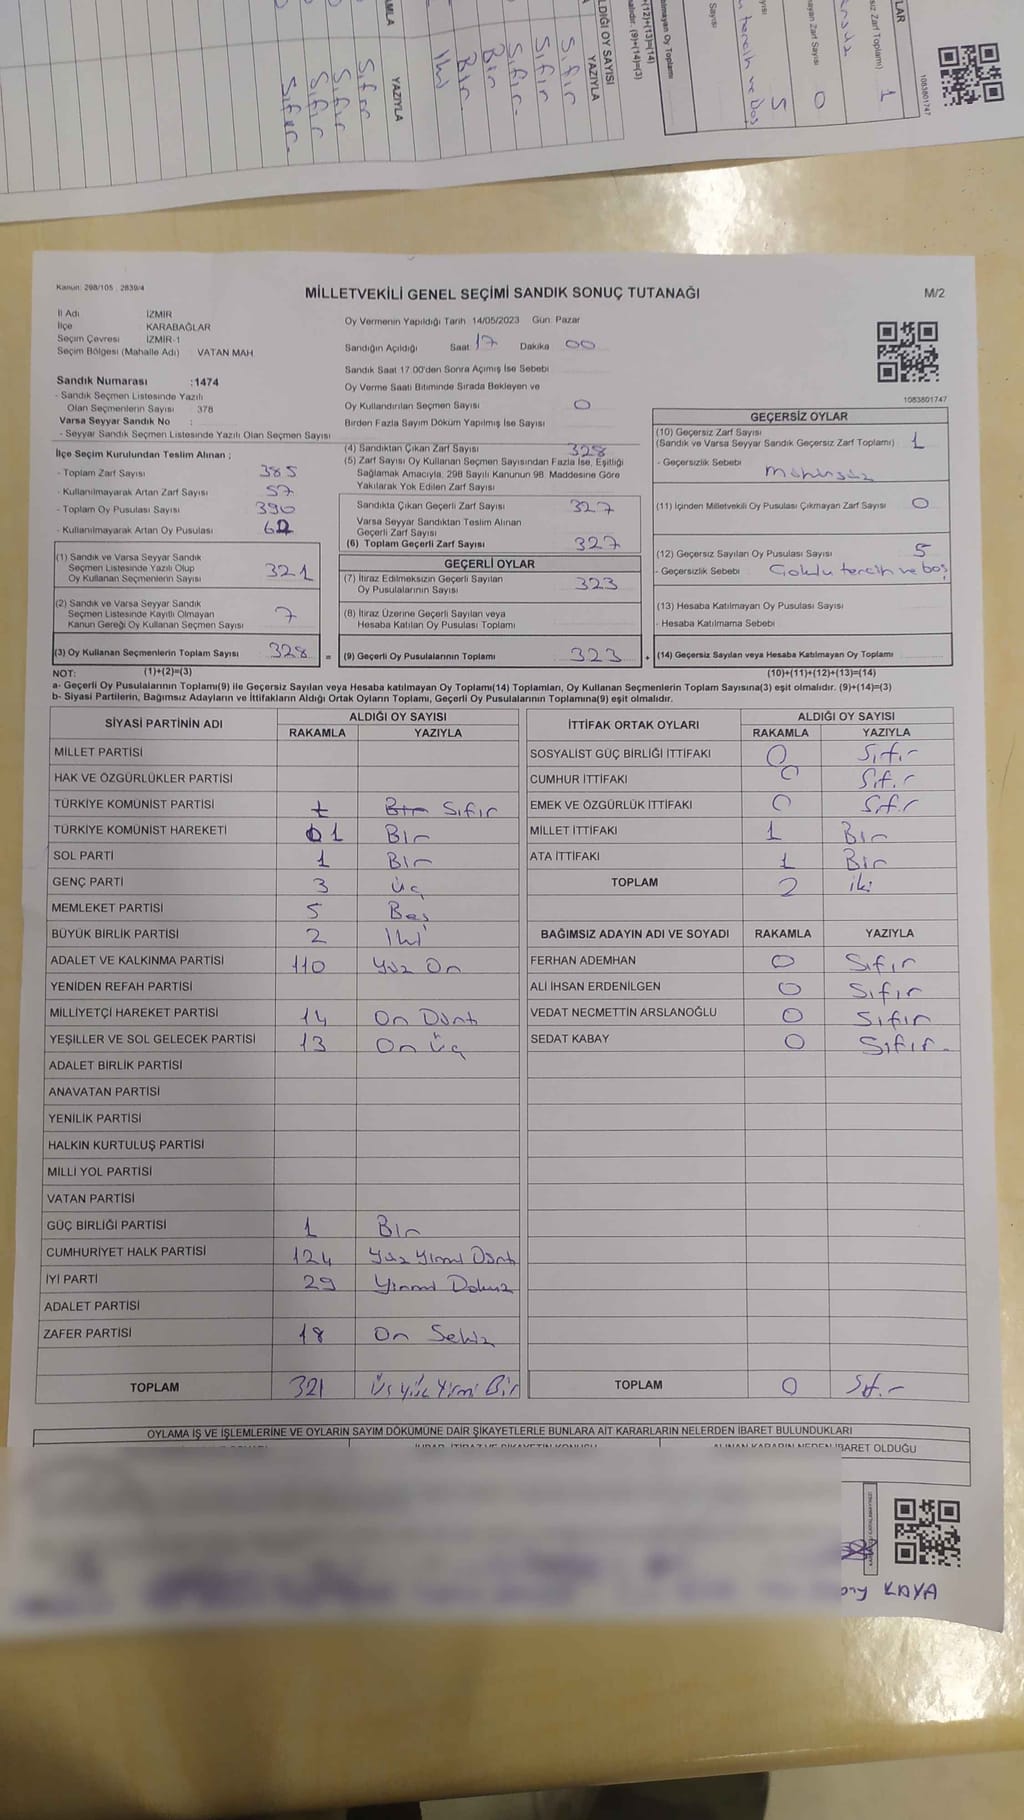 Kanun: 298/105 , 2839/4
MİLLETVEKİLİ GENEL SEÇİMİ SANDIK SONUÇ TUTANAĞI
M/2
İl Adı İZMİR
İlçe KARABAĞLAR
Seçim Çevresi İZMİR-1
Seçim Bölgesi (Mahalle Adı) VATAN MAH.
Sandık Numarası :1474
- Sandık Seçmen Listesinde Yazılı
Olan Seçmenlerin Sayısı : 378
Varsa Seyyar Sandık No :
- Seyyar Sandık Seçmen Listesinde Yazılı Olan Seçmen Sayısı :
İlçe Seçim Kurulundan Teslim Alınan ;
- Toplam Zarf Sayısı 385
- Kullanılmayarak Artan Zarf Sayısı 57
- Toplam Oy Pusulası Sayısı 390
- Kullanılmayarak Artan Oy Pusulası 62
(1) Sandık ve Varsa Seyyar Sandık
Seçmen Listesinde Yazılı Olup
Oy Kullanan Seçmenlerin Sayısı 321
(2) Sandık ve Varsa Seyyar Sandık
Seçmen Listesinde Kayıtlı Olmayan
Kanun Gereği Oy Kullanan Seçmen Sayısı 7
(3) Oy Kullanan Seçmenlerin Toplam Sayısı 328
Oy Vermenin Yapıldığı Tarih 14/05/2023 Gün: Pazar
Sandığın Açıldığı Saat 17 Dakika 00
Sandık Saat 17.00'den Sonra Açımış İse Sebebi
Oy Verme Saati Bitiminde Sırada Bekleyen ve
Oy Kullandırılan Seçmen Sayısı 0
Birden Fazla Sayım Döküm Yapılmış İse Sayısı
(4) Sandıktan Çıkan Zarf Sayısı 328
(5) Zarf Sayısı Oy Kullanan Seçmen Sayısından Fazla İse, Eşitliği
Sağlamak Amacıyla, 298 Sayılı Kanunun 98. Maddesine Göre
Yakılarak Yok Edilen Zarf Sayısı
Sandıkta Çıkan Geçerli Zarf Sayısı 327
Varsa Seyyar Sandıktan Teslim Alınan
Geçerli Zarf Sayısı
(6) Toplam Geçerli Zarf Sayısı 327
GEÇERLİ OYLAR
(7) İtiraz Edilmeksizin Geçerli Sayılan
Oy Pusulalarının Sayısı 323
(8) İtiraz Üzerine Geçerli Sayılan veya
Hesaba Katılan Oy Pusulası Toplamı
= (9) Geçerli Oy Pusulalarının Toplamı 323
1083801747
GEÇERSİZ OYLAR
(10) Geçersiz Zarf Sayısı
(Sandık ve Varsa Seyyar Sandık Geçersiz Zarf Toplamı) 1
- Geçersizlik Sebebi
Mühürsüz
(11) İçinden Milletvekili Oy Pusulası Çıkmayan Zarf Sayısı 0
(12) Geçersiz Sayılan Oy Pusulası Sayısı 5
- Geçersizlik Sebebi Çoklu tercih ve boş
(13) Hesaba Katılmayan Oy Pusulası Sayısı
- Hesaba Katılmama Sebebi
+ (14) Geçersiz Sayılan veya Hesaba Katılmayan Oy Toplamı
NOT: (1)+(2)=(3) (10)+(11)+(12)+(13)=(14)
a- Geçerli Oy Pusulalarının Toplamı(9) ile Geçersiz Sayılan veya Hesaba katılmayan Oy Toplamı(14) Toplamları, Oy Kullanan Seçmenlerin Toplam Sayısına(3) eşit olmalıdır. (9)+(14)=(3)
b- Siyasi Partilerin, Bağımsız Adayların ve İttifakların Aldığı Ortak Oyların Toplamı, Geçerli Oy Pusulalarının Toplamına(9) eşit olmalıdır.
SİYASİ PARTİNİN ADI ALDIĞI OY SAYISI
RAKAMLA YAZIYLA
MİLLET PARTİSİ
HAK VE ÖZGÜRLÜKLER PARTİSİ
TÜRKİYE KOMÜNİST PARTİSİ Bir Sıfır
TÜRKİYE KOMÜNİST HAREKETİ 01 Bir
SOL PARTİ 1 Bir
GENÇ PARTİ 3 Üç
MEMLEKET PARTİSİ 5 Beş
BÜYÜK BİRLİK PARTİSİ 2 İki
ADALET VE KALKINMA PARTİSİ 110 Yüz On
YENİDEN REFAH PARTİSİ
MİLLİYETÇİ HAREKET PARTİSİ 14 On Dört
YEŞİLLER VE SOL GELECEK PARTİSİ 13 On Üç
ADALET BİRLİK PARTİSİ
ANAVATAN PARTİSİ
YENİLİK PARTİSİ
HALKIN KURTULUŞ PARTİSİ
MİLLİ YOL PARTİSİ
VATAN PARTİSİ
GÜÇ BİRLİĞİ PARTİSİ 1 Bir
CUMHURİYET HALK PARTİSİ 124 Yüz Yirmi Dört
İYİ PARTİ 29 Yirmi Dokuz
ADALET PARTİSİ
ZAFER PARTİSİ 18 On Sekiz
TOPLAM 321 Üç Yüz Yirmi Bir
İTTİFAK ORTAK OYLARI ALDIĞI OY SAYISI
RAKAMLA YAZIYLA
SOSYALİST GÜÇ BİRLİĞİ İTTİFAKI 0 Sıfır
CUMHUR İTTİFAKI 0 Sıfır
EMEK VE ÖZGÜRLÜK İTTİFAKI 0 Sıfır
MİLLET İTTİFAKI 1 Bir
ATA İTTİFAKI 1 Bir
TOPLAM 2 iki
BAĞIMSIZ ADAYIN ADI VE SOYADI RAKAMLA YAZIYLA
FERHAN ADEMHAN 0 Sıfır
ALİ İHSAN ERDENİLGEN 0 Sıfır
VEDAT NECMETTİN ARSLANOĞLU 0 Sıfır
SEDAT KABAY 0 Sıfır
TOPLAM 0 Sıfır
OYLAMA İŞ VE İŞLEMLERİNE VE OYLARIN SAYIM DÖKÜMÜNE DAİR ŞİKAYETLERLE BUNLARA AİT KARARLARIN NELERDEN İBARET BULUNDUKLARI
ALINAN KARARIN NEDEN İBARET OLDUĞU
KAYA